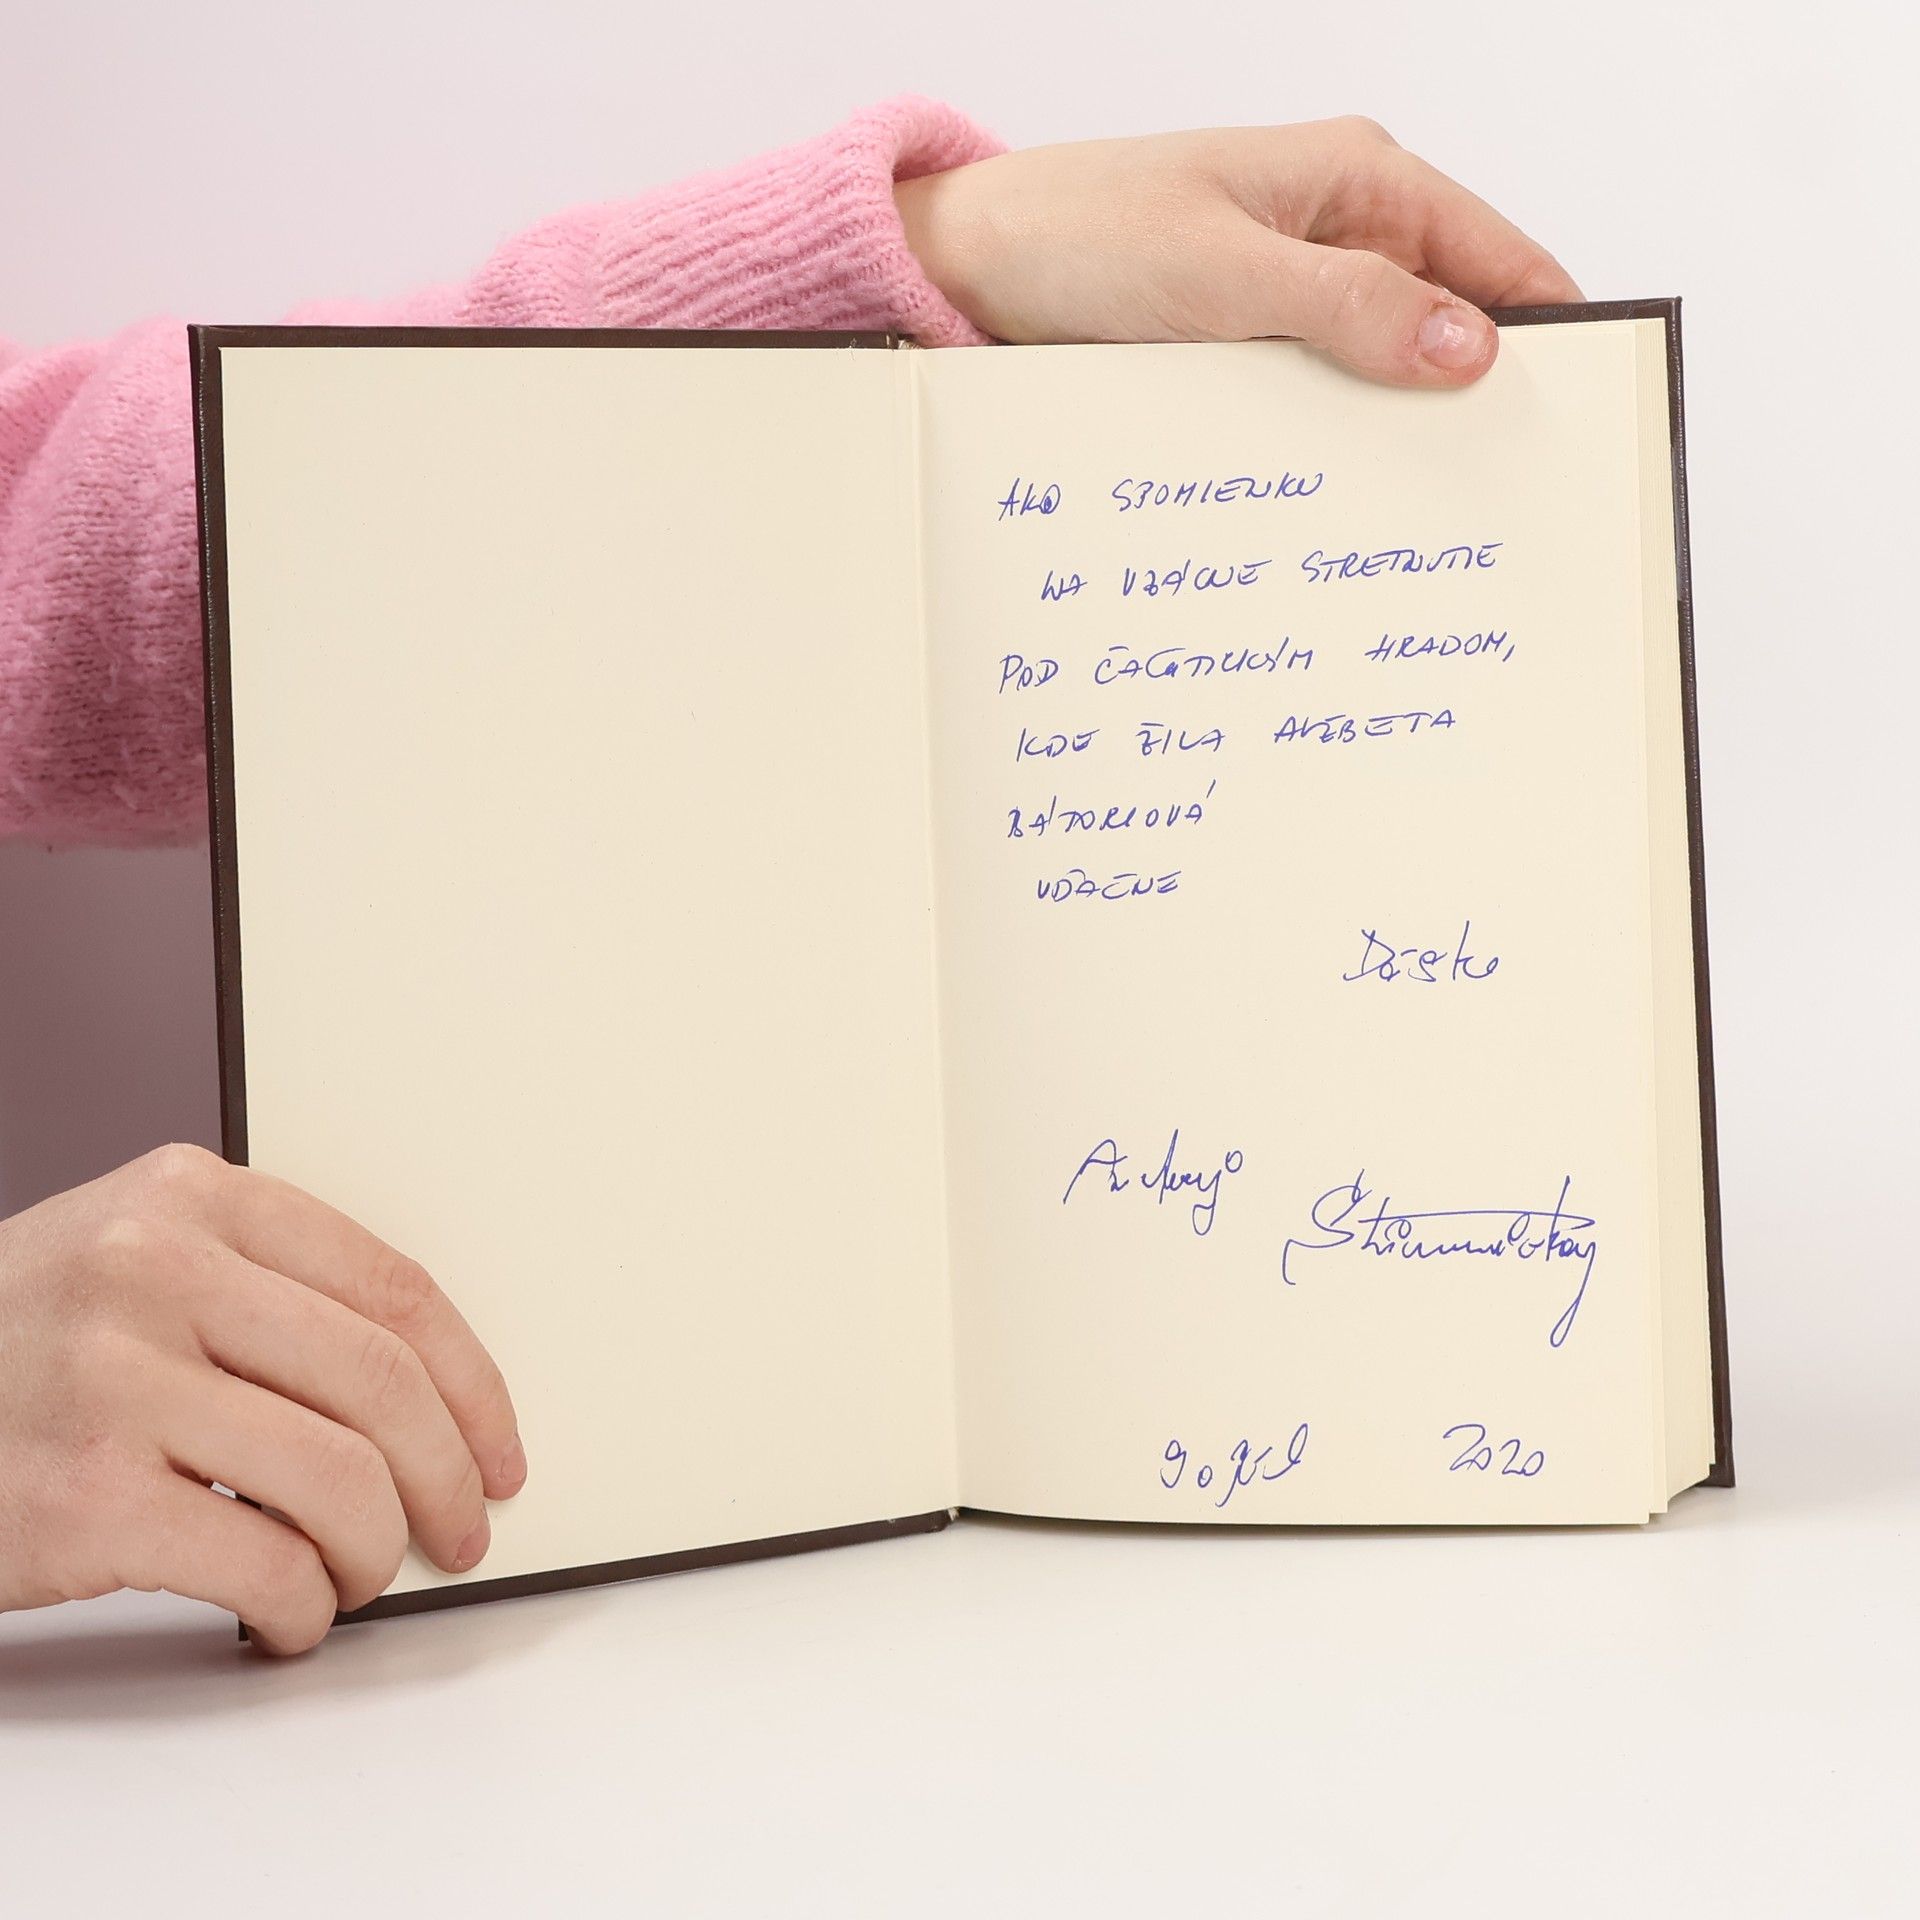 AKO SPOMIENKU
NA VZÁCNE STRETNUTIE
POD ČACHTICKÝM HRADOM,
KDE ŽILA ALŽBETA
BÁTORIOVÁ
VĎAČNE
Andrej
2020